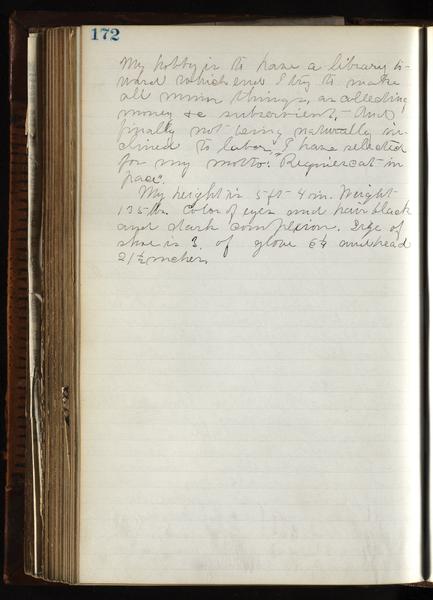 172
My hobby is to have a library to-
ward which end I try to make
all minor things, as collecting
money &c subservient,- And
finally not being naturally in-
clined to labor, I have selected
for my motto: "Requiescat in
pace."
My height is 5 ft- 4 in. Weight
135 lbs. Color of eyes and hair black
and dark complexion. Size of
shoe is 3. of glove 6¼ and head
21½ inches.